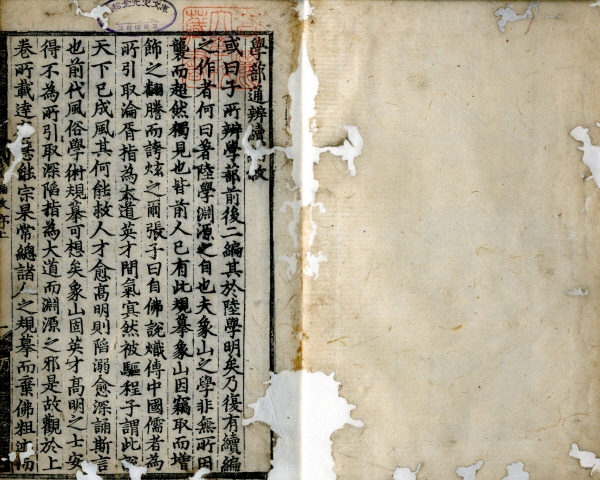 學部通辨續
或曰子所辨學部前後二編其於陸學明矣乃復有續編
之作者何曰著陸學淵源之自也夫象山之學非無所因
襲而超然獨見也昔前人已有此規摹象山因竊取而增
飾之翻謄而誇炫之爾張子曰自佛說熾傳中國儒者為
所引取淪胥指為大道英才間氣冥然被驅程子謂此
天下已成風其何能救人才愈高明則陷溺愈深誦斯言
也前代風俗學術規摹可想矣象山固英才高明之士安
得不為所引取深陷指為大道而淵源之邪是故觀於上
卷所載達 慧能宗杲常總諸人之規摹而棄佛粗迹